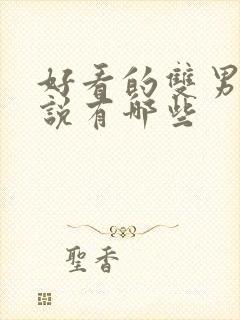 好看的雙男
說有哪些
聖香